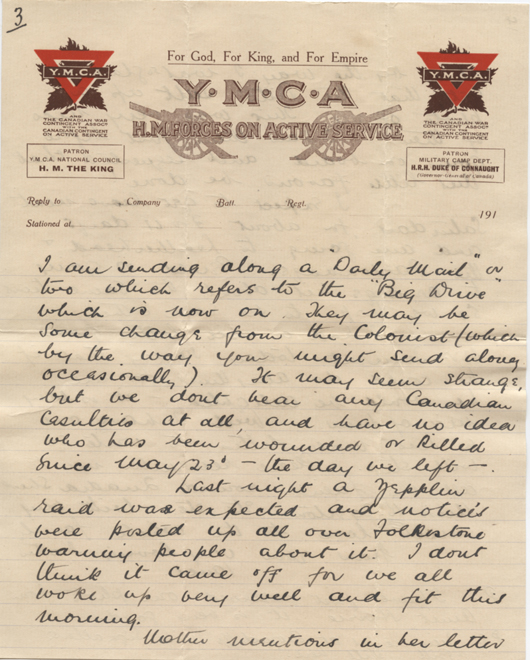 3
For God, For King, and For Empire
Y.M.C.A
H.M. FORCES ON ACTIVE SERVICE
Y.M.C.A.
AND
THE CANADIAN WAR
CONTINGENT ASSOC'N
WITH THE
CANADIAN CONTINGENT
ON ACTIVE SERVICE
PATRON
Y.M.C.A. NATIONAL COUNCIL
H. M. THE KING
Y.M.C.A.
AND
THE CANADIAN WAR
CONTINGENT ASSOC'N
WITH THE
CANADIAN CONTINGENT
ON ACTIVE SERVICE
PATRON
MILITARY CAMP DEPT.
H.R.H. DUKE OF CONNAUGHT
(Governor General of Canada)
Reply to Company Batt. Regt.
191
Stationed at
I am sending along a "Daily Mail" or
two which refers to the "Big Drive"
which is now on. They may be
some change from the Colonist (which
by the way you might send along
occasionally). It may seem strange,
but we dont hear any Canadian
Casulties at all, and have no idea
who has been wounded or killed
since May 23d – the day we left –.
Last night a Zepplin
raid was expected and notices
were posted up all over Folkestone
warning people about it. I dont
think it came off for we all
woke up very well and fit this
morning.
Mother mentions in her letter